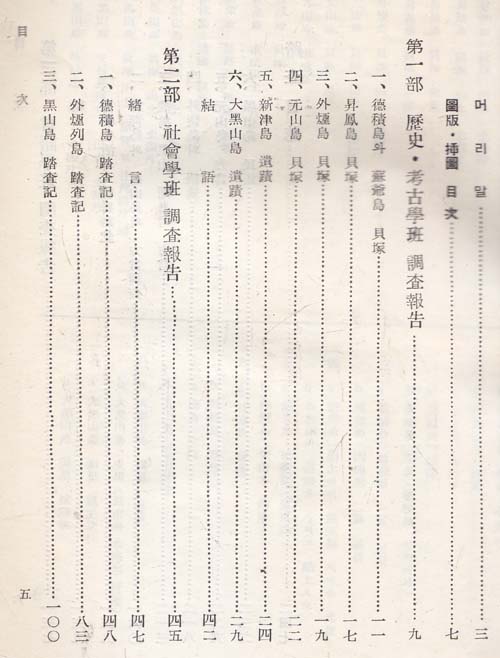 머리말 三
圖版・揷圖 目次 七
第一部 歷史・考古學班 調査報告 九
一、德積島와 蘇爺島 貝塚 一一
二、昇鳳島 貝塚 一七
三、外煙島 貝塚 一九
四、元山島 貝塚 二二
五、新津島 遺蹟 二四
六、大黑山島 遺蹟 二九
結語 四二
第二部 社會學班 調査報告 四五
緖言 四七
一、德積島 踏査記 四八
二、外煙列島 踏査記 八三
三、黑山島 踏査記 一〇〇
目次 五